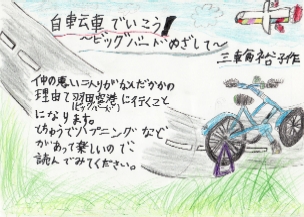 自転車でいこう!
〜ビッグバードめざして〜
三輪裕子作
仲の悪い二人がなんだかの
理由で羽田空港に行くこと
(ビッグバード)
になります。
とちゅうでハプニングなど
があって楽しいので、
読んでみてください。